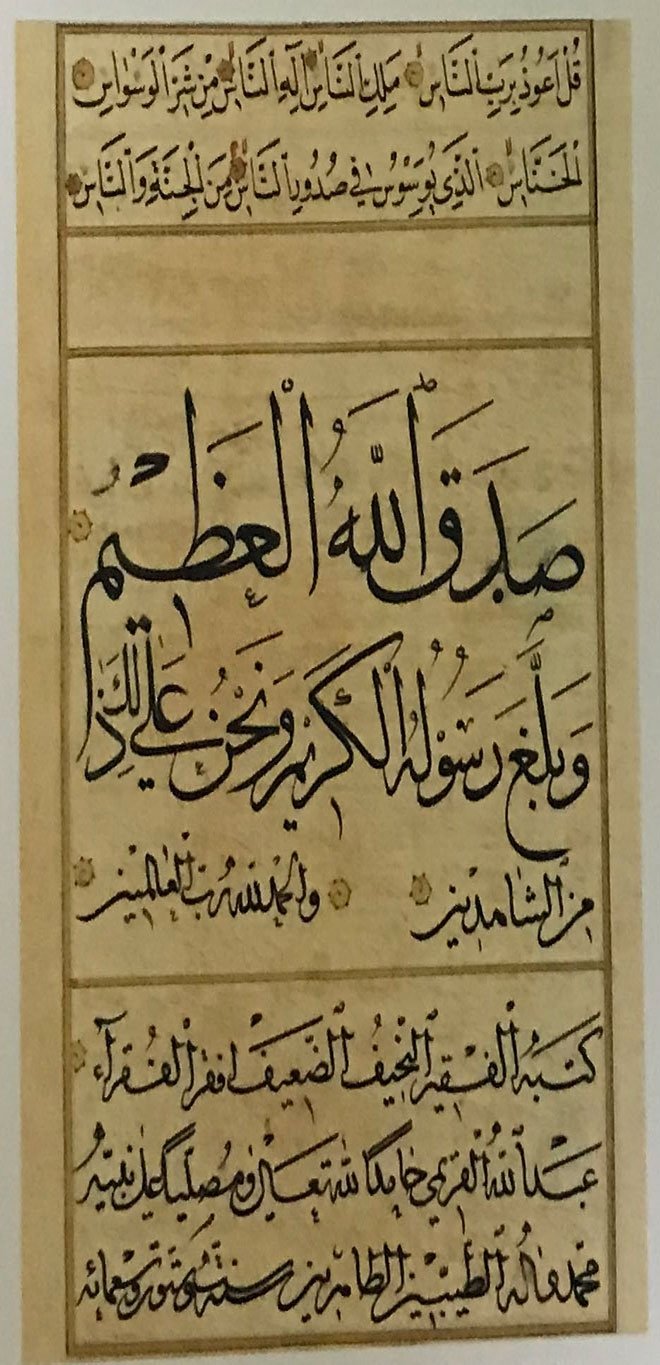 قُلْ اَعُوذُ بِرَبِّ النَّاسِ مَلِكِ النَّاسِ اِلٰهِ النَّاسِ مِنْ شَرِّ الْوَسْوَاسِ
الْخَنَّاسِ الَّذِى يُوَسْوِسُ فِى صُدُورِ النَّاسِ مِنَ الْجِنَّةِ وَالنَّاسِ
صَدَقَ اللّٰهُ الْعَظِيمُ
وَبَلَّغَ رَسُولُهُ الْكَرِيمُ وَنَحْنُ عَلٰى ذٰلِكَ
مِنَ الشَّاهِدِينَ وَالْحَمْدُ لِلّٰهِ رَبِّ الْعَالَمِينَ
كَتَبَهُ الْفَقِيرُ النَّحِيفُ الضَّعِيفُ افقر الْفُقَرَآءِ
عَبْدُ اللّٰهِ الْقريمي حَامِدًا لِلّٰهِ تَعَالٰى وَمُصَلِّيًا عَلٰى نَبِيِّهِ
مُحَمَّد وَاٰلِهِ الطَّيِّبِينَ الطَّاهِرِينَ سنة وتسعمائة